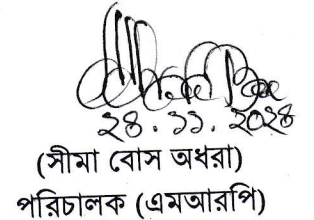 ২৪.১১.২০২৪
(সীমা বোস অধরা)
পরিচালক (এমআরপি)